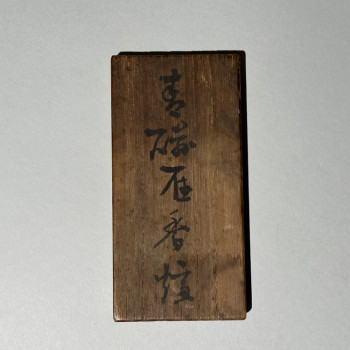 青磁座香炉